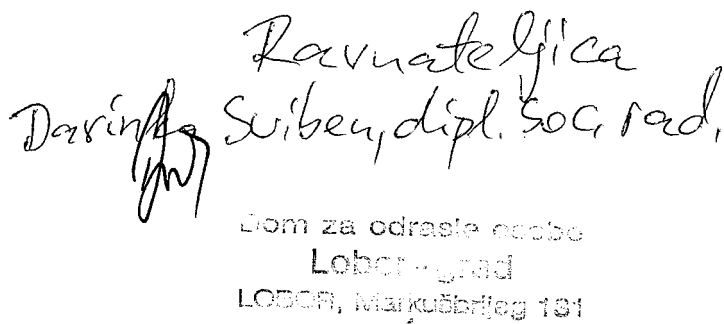 Ravnateljica
Darinka Sviben, dipl. soc. rad.
Dom za odrasle osobe
Lobor-grad
LOBOR, Markušbrijeg 131